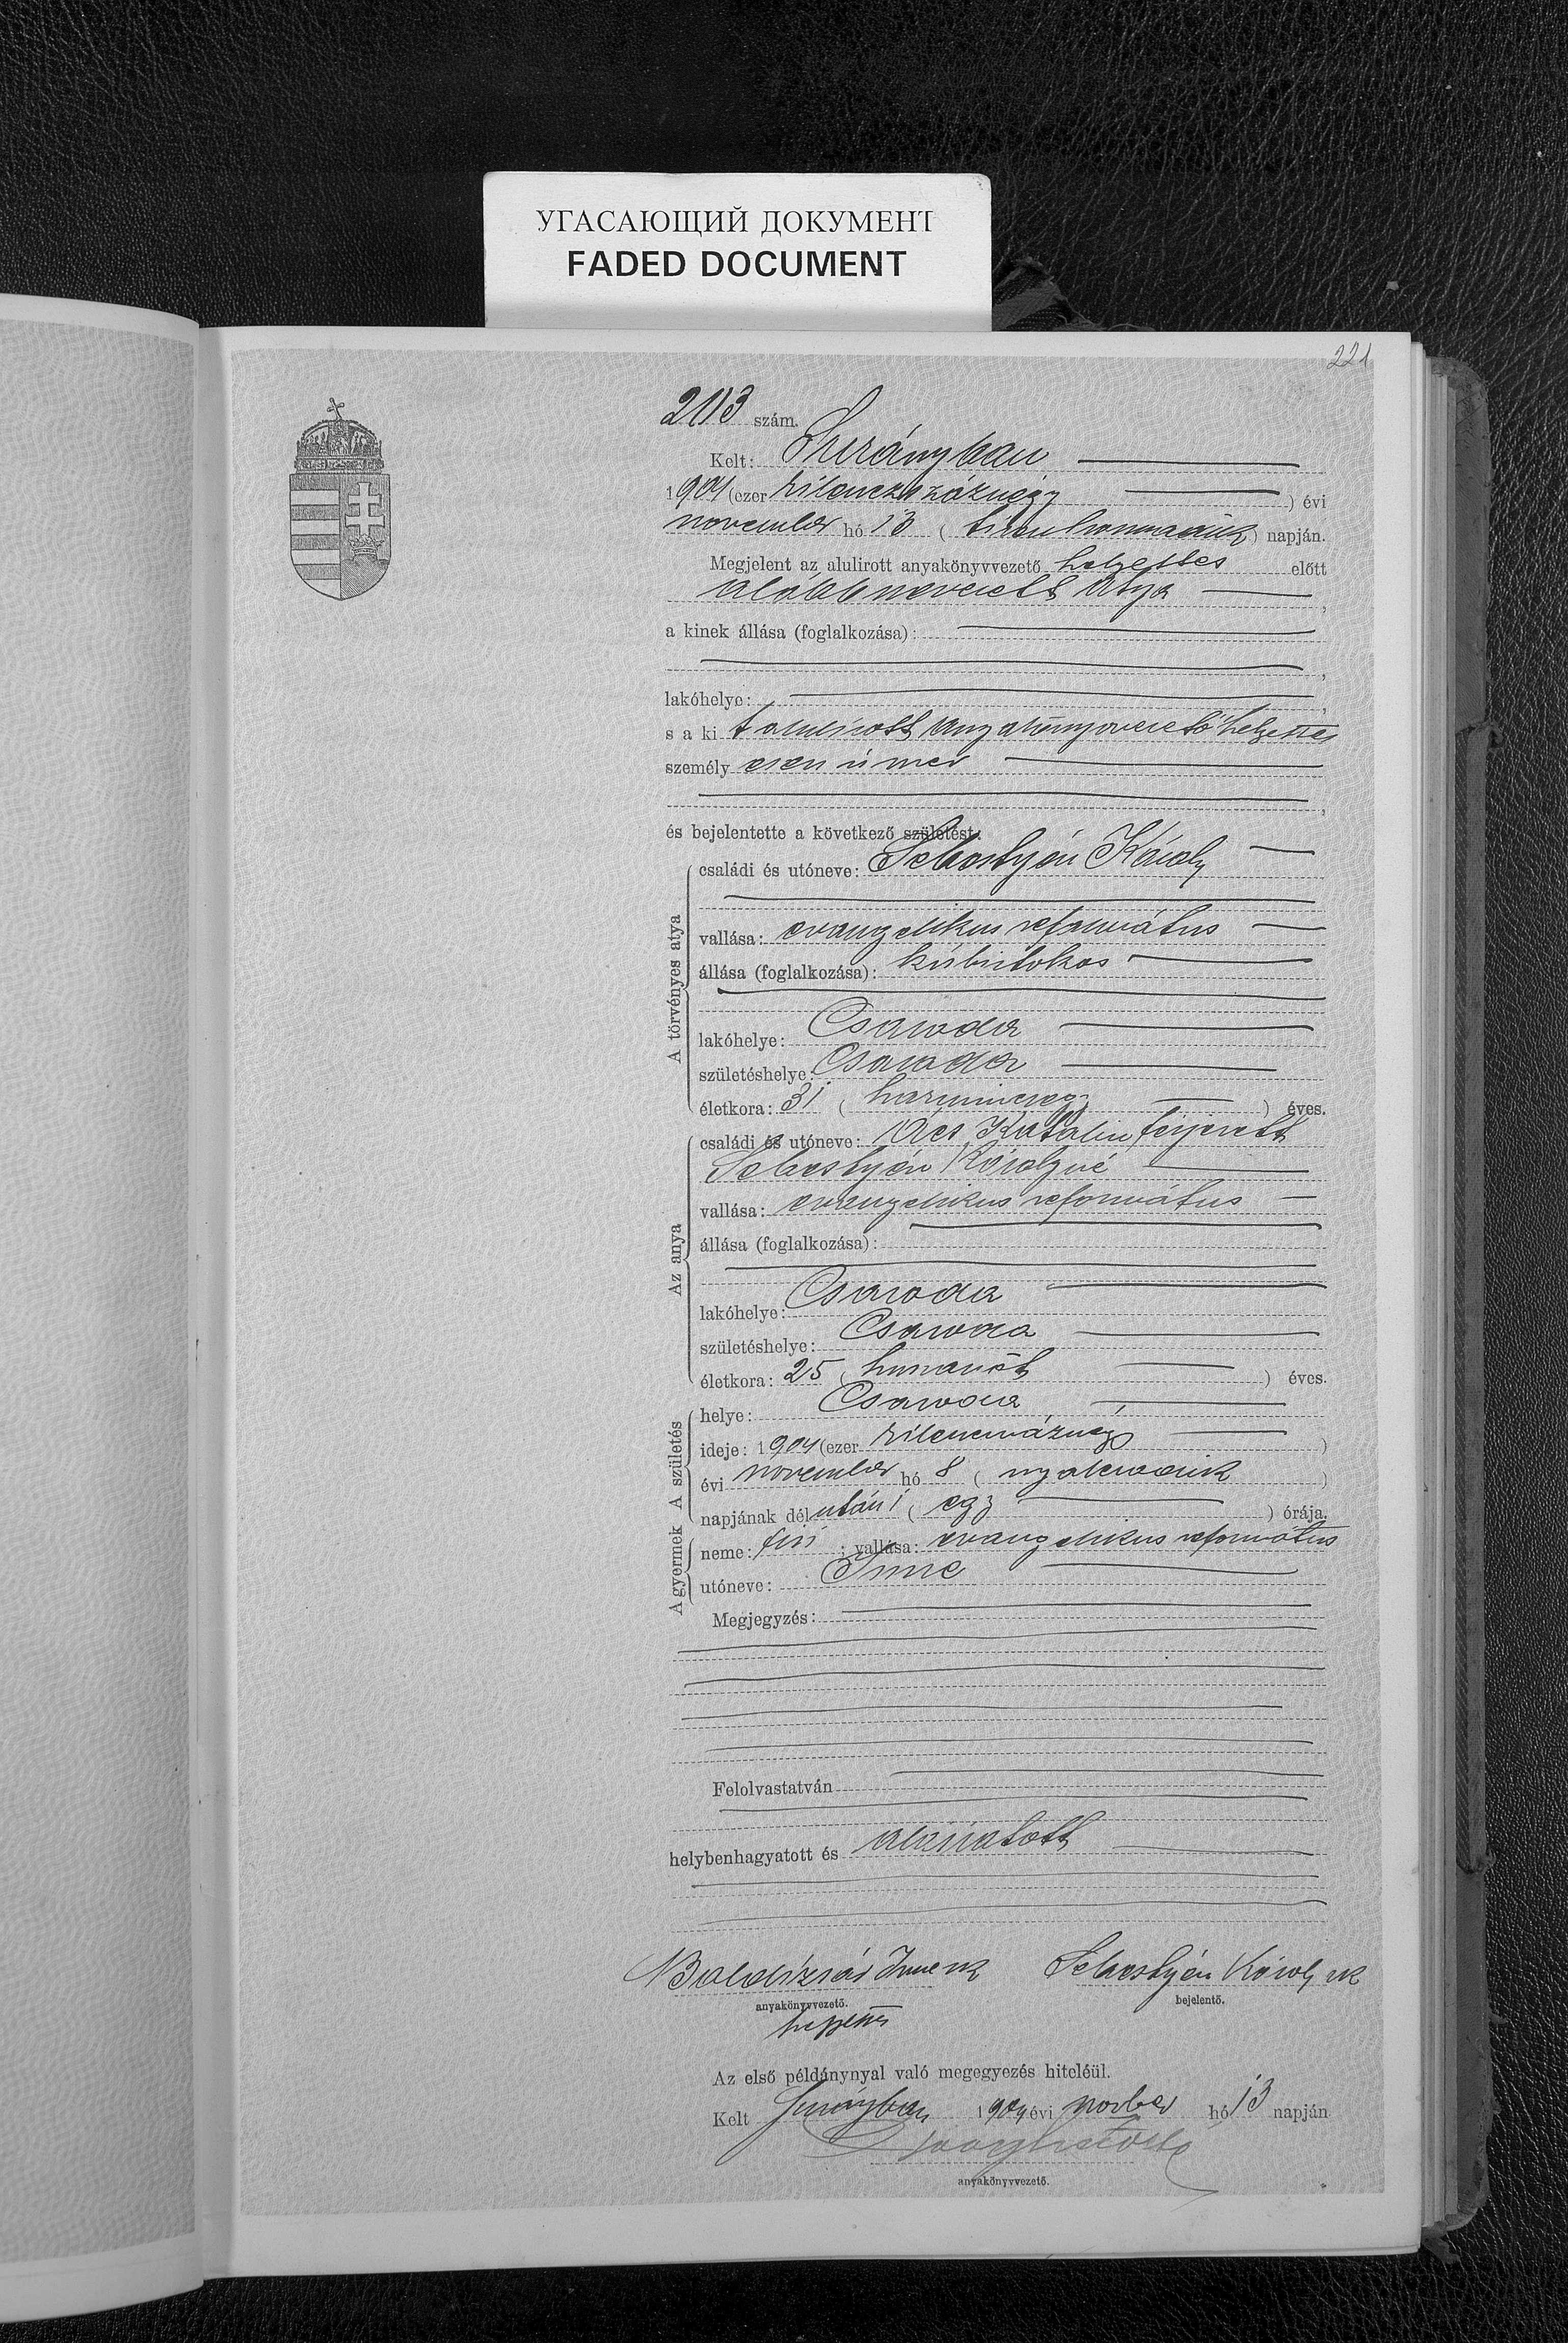 УГАСАЮЩИЙ ДОКУМЕНТ
FADED DOCUMENT
221
213 szám.
Kelt: Surányban
1904 (ezer kilenczszáznégy ) évi
november hó 13 ( tizenharmadik ) napján.
Megjelent az alulirott anyakönyvvezető helyettes előtt
alább nevezett atya ,
a kinek állása (foglalkozása):
lakóhelye:
s a ki t alulírott anyakönyvvezető helyettes
személy esen ismer
és bejelentette a következő születést:
A törvényes atya
családi és utóneve: Sebestyén Károly
vallása: evangelikus református
állása (foglalkozása): kisbirtokos
lakóhelye: Csaroda
születéshelye: Csaroda
életkora: 31 ( harminczegy ) éves.
Az anya
családi és utóneve: Ács Katalin férjezett
Sebestyén Károlyné
vallása: evangelikus református
állása (foglalkozása):
lakóhelye: Csaroda
születéshelye: Csaroda
életkora: 25 ( huszonöt ) éves.
A születés
helye: Csaroda
ideje: 1904 (ezer kilenczszáznégy )
évi november hó 8 ( nyolczadik )
napjának dél után 1 ( egy ) órája.
A gyermek
neme: fiú ; vallása: evangelikus református
utóneve: Imre
Megjegyzés:
Felolvastatván
helybenhagyatott és aláíratott
Baldizsár Imre sk Sebestyén Károly sk
anyakönyvvezető. bejelentő.
helyettes
Az első példánynyal való megegyezés hiteléül.
Kelt Surányban 1904 évi novber hó 13 napján
anyakönyvvezető.